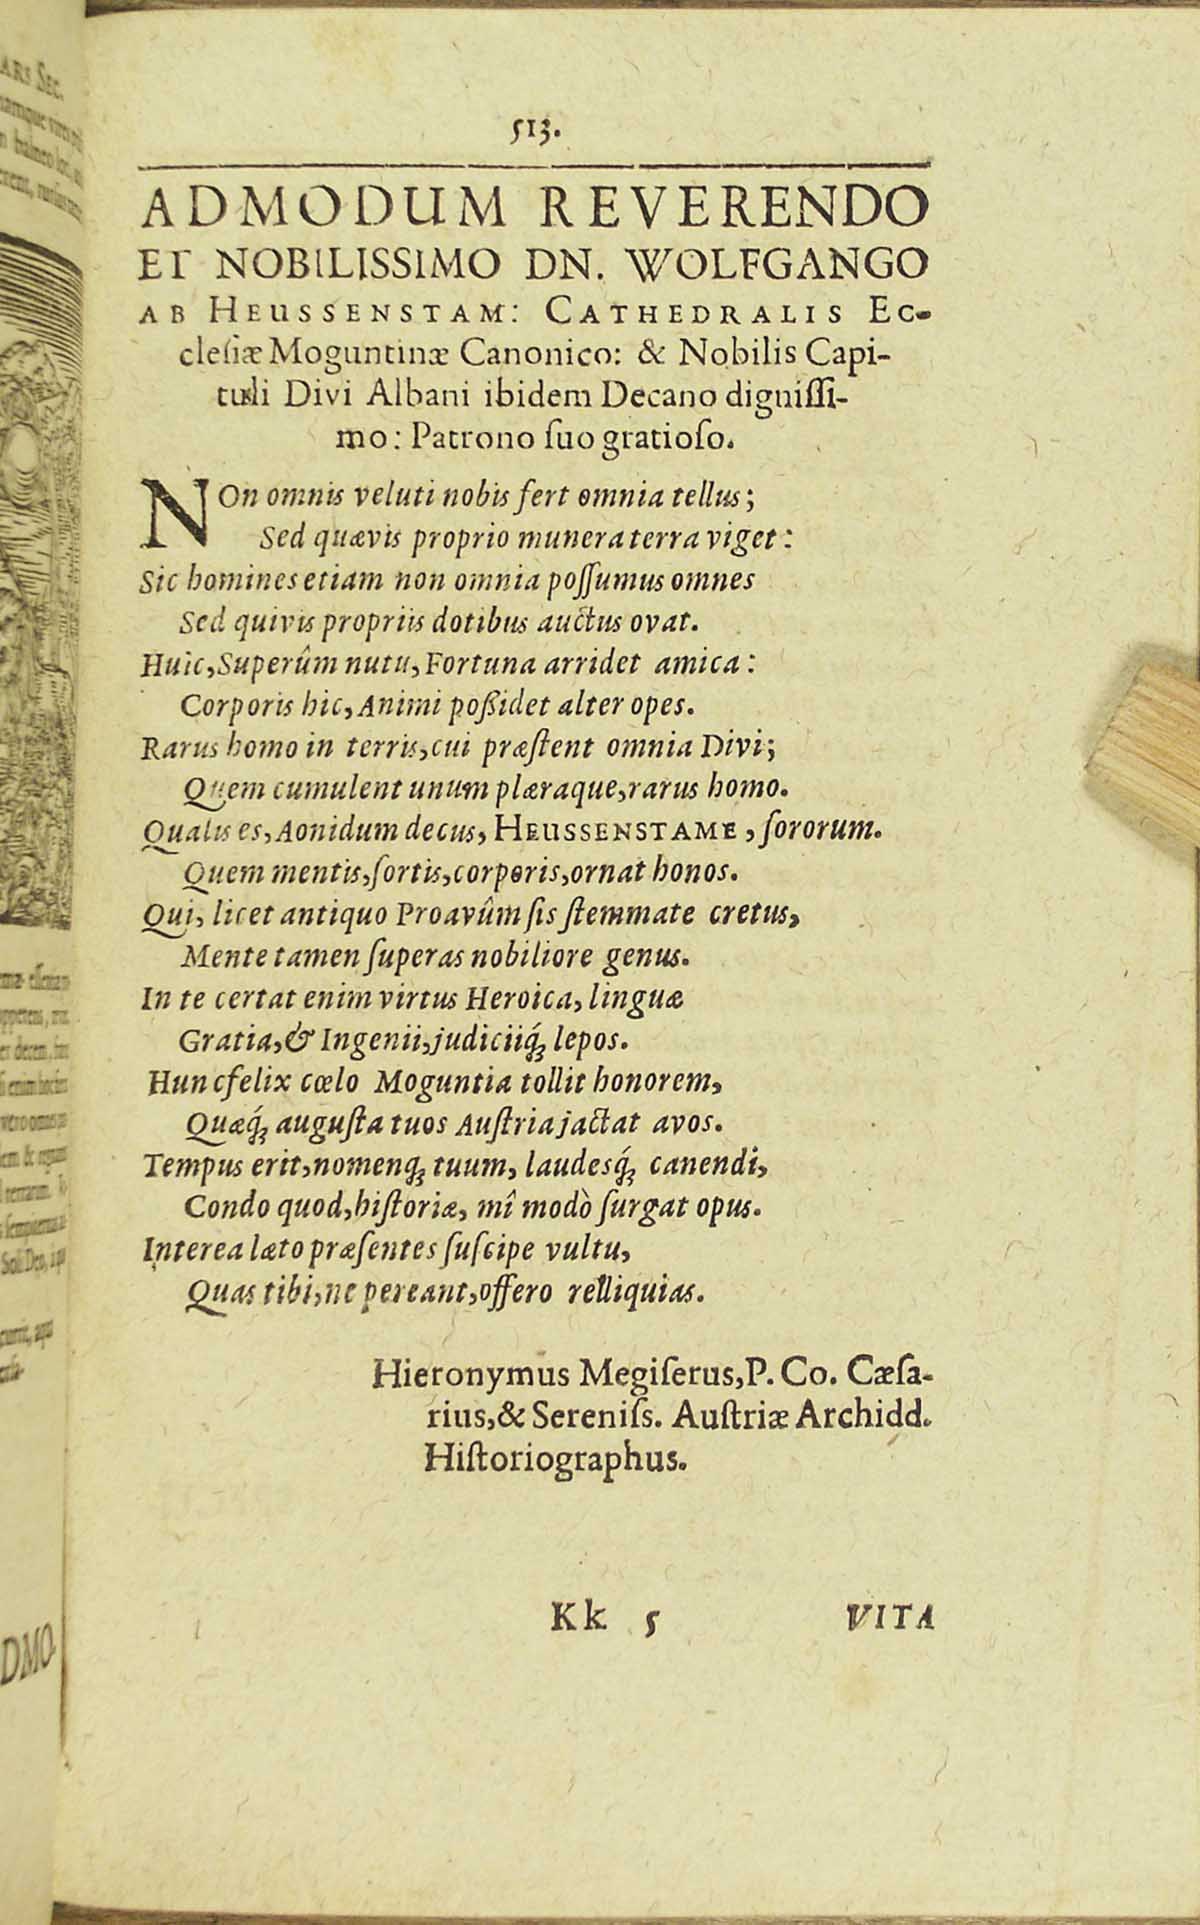 513.
ADMODUM REVERENDO
ET NOBILISSIMO DN. WOLFGANGO
AB HEUSSENSTAM: CATHEDRALIS EC-
cleſiæ Moguntinæ Canonico: & Nobilis Capi-
tuli Divi Albani ibidem Decano digniſſi-
mo: Patrono ſuo gratioſo.
NOn omnis veluti nobis fert omnia tellus;
Sed quævis proprio munera terra viget:
Sic homines etiam non omnia poſſumus omnes
Sed quivis propriis dotibus auctus ovat.
Huic, Superûm nutu, Fortuna arridet amica:
Corporis hic, Animi poßidet alter opes.
Rarus homo in terris, cui præſtent omnia Divi;
Quem cumulent unum plæraque, rarus homo.
Qualis es, Aonidum decus, HEUSSENSTAME, ſororum.
Quem mentis, ſortis, corporis, ornat honos.
Qui, licet antiquo Proavûm ſis ſtemmate cretus,
Mente tamen ſuperas nobiliore genus.
In te certat enim virtus Heroica, linguæ
Gratia, & Ingenii, judiciiq́; lepos.
Hunc felix cœlo Moguntia tollit honorem,
Quæq́; auguſta tuos Auſtria jactat avos.
Tempus erit, nomenq; tuum, laudesq́; canendi,
Condo quod, hiſtoriæ, mî modò ſurgat opus.
Interea læto præſentes ſuſcipe vultu,
Quas tibi, ne pereant, offero relliquias.
Hieronymus Megiſerus, P. Co. Cæſa-
rius, & Sereniſs. Auſtriæ Archidd.
Hiſtoriographus.
Kk 5 VITA
ARS Sec.
DMO-